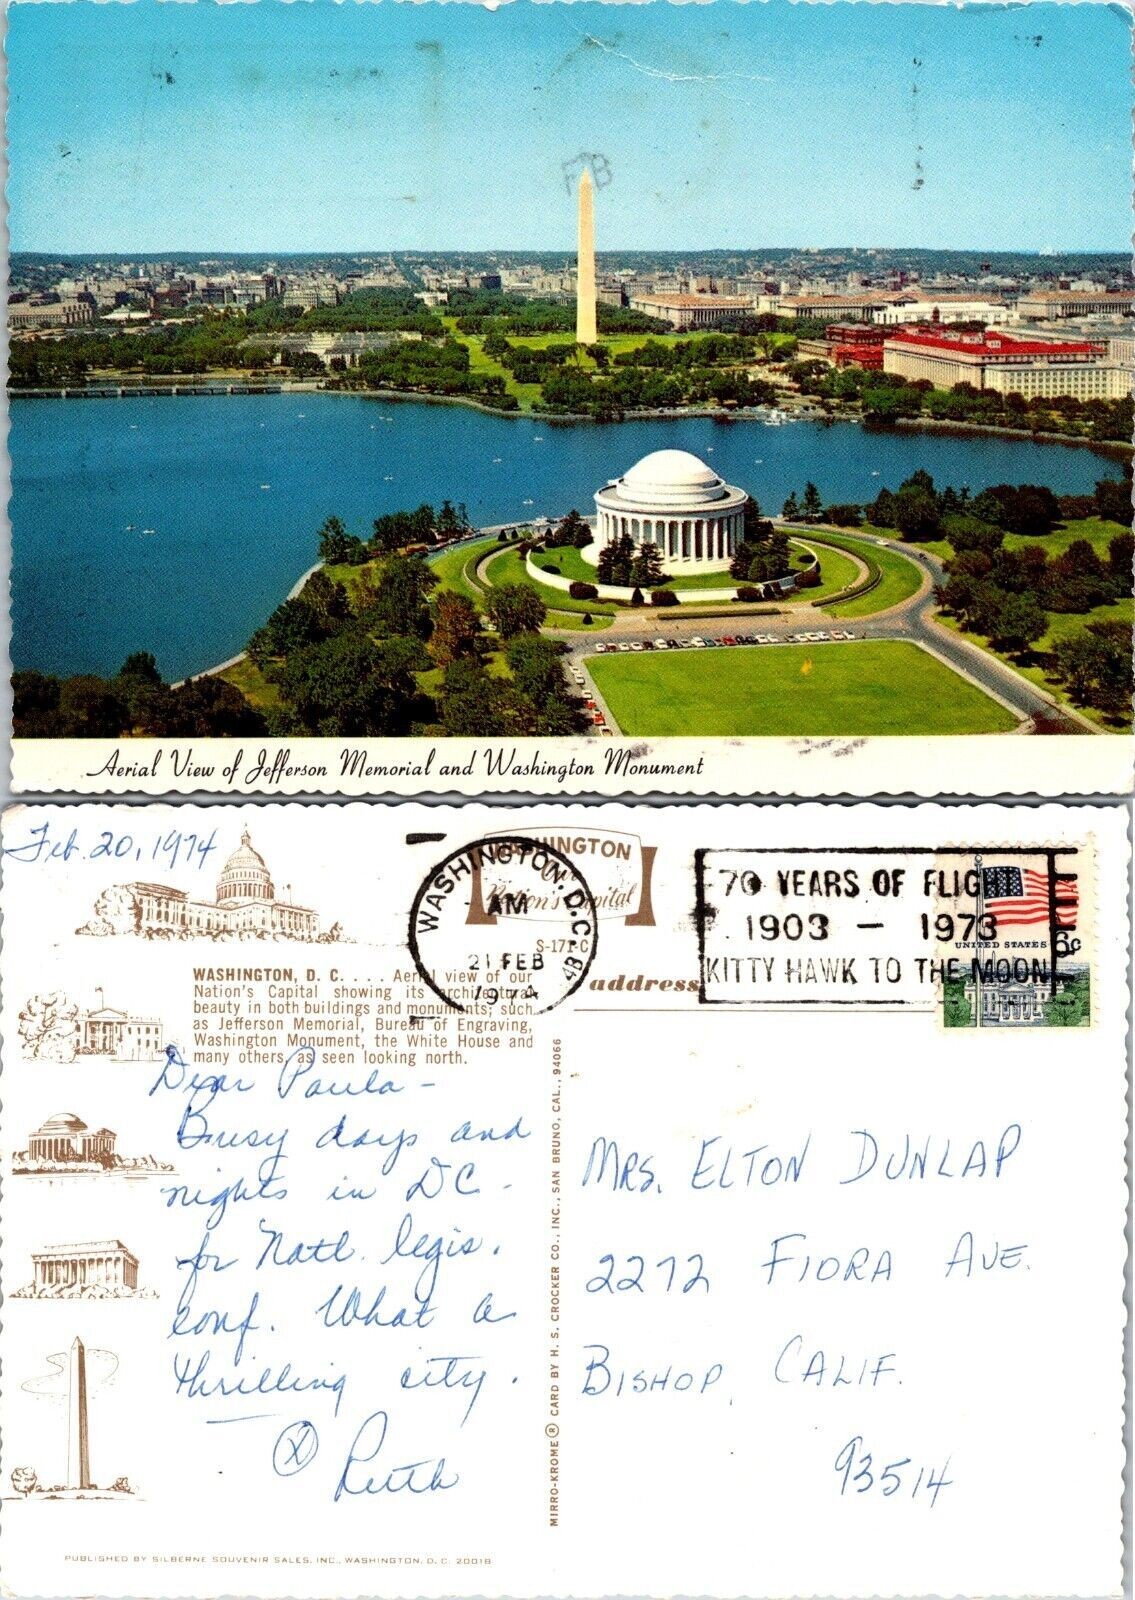 FTB
Aerial View of Jefferson Memorial and Washington Monument
Feb. 20, 1974
WASHINGTON
Our
Nation's Capital
S-171-C
WASHINGTON, D.C.
AM
21 FEB
1974
4B
70 YEARS OF FLIGHT
1903 — 1973
KITTY HAWK TO THE MOON
UNITED STATES
6c
address
WASHINGTON, D. C. ... Aerial view of our
Nation's Capital showing its architectural
beauty in both buildings and monuments; such
as Jefferson Memorial, Bureau of Engraving,
Washington Monument, the White House and
many others, as seen looking north.
Dear Paula -
Busy days and
nights in DC -
for Natl. legis.
conf. What a
thrilling city.
X Ruth
MIRRO-KROME® CARD BY H. S. CROCKER CO., INC., SAN BRUNO, CAL., 94066
MRS. ELTON DUNLAP
2272 FIORA AVE.
BISHOP, CALIF.
93514
PUBLISHED BY SILBERNE SOUVENIR SALES, INC., WASHINGTON, D. C. 20018